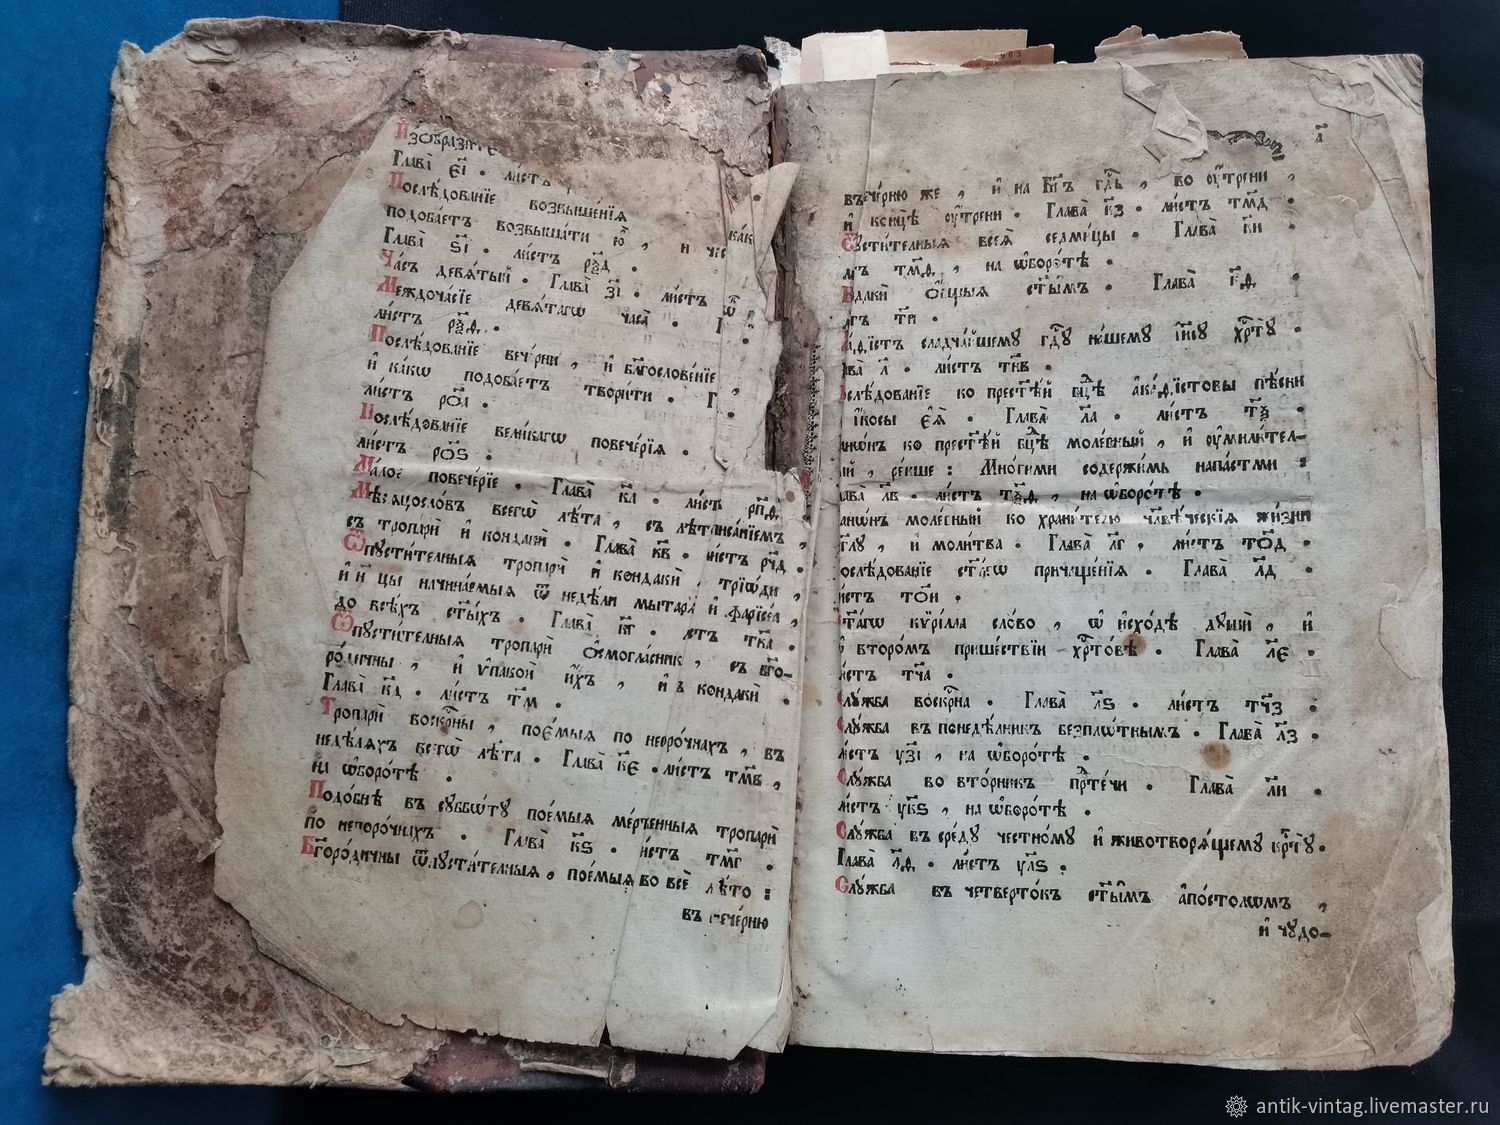 Изобрази
Глава̀ є҃і . листъ
Послѣдованїе возвышенїѧ
какѡ
подобаетъ возвышати ю҆ , и
Глава̀ ѕ҃і . листъ
Часъ девѧтый . Глава̀ з҃і . листъ
Междочасїе девѧтагѡ часа̀ .
листъ
Послѣдованїе вечерни , и҆ блг҃ословенїе ,
и҆ какѡ подобаетъ творити .
листъ
Послѣдованїе великагѡ повечерїѧ .
листъ ро҃ѕ .
Малое повечерїе . Глава̀ к҃а . листъ рп҃д .
Мѣсѧцословъ всегѡ̀ лѣта , съ лѣтписанїемъ ,
съ тропари̑ и҆ кондаки̑ . Глава̀ к҃в . листъ рч҃д .
Ѿпустительныѧ тропари̑ и҆ кондаки̑ , трїѡди ,
начинаемыѧ ѿ недѣли мытарѧ̀ и҆ фарїсеѧ ,
до всѣхъ ст҃ыхъ . Глава̀ к҃г . листъ тк҃а .
Ѿпустительныѧ тропари̑ о҆смогласник , съ бг҃о-
родичны , и҆ ѵ҆пакои̑ и҆хъ , и҆ кондаки̑ .
Глава̀ к҃д . листъ тл҃м .
Тропари̑ воскр҃ны , поемыѧ по непорочнахъ , въ
недѣлѧхъ всегѡ̀ лѣта . Глава̀ к҃є . листъ тм҃в ,
на ѡ҆боротѣ .
Подобнѣ въ суббѡту поемыѧ мертвенныѧ тропари̑
по непорочнахъ . Глава̀ к҃ѕ . листъ тм҃г .
Бг҃ородичны ѿпустительныѧ , поемыѧ во всѐ лѣто :
въ вечерню
а҃
въ вечерню же , и҆ на Бг҃ъ гд҃ь , во ѹ҆трени ,
и҆ конецѣ ѹ҆трени . Глава̀ к҃з . листъ тм҃д .
Ѿпустительныѧ всеѧ̀ седмицы . Глава̀ к҃и .
листъ , на ѡ҆боротѣ .
Кондаки̑ о҆бщыѧ ст҃ымъ . Глава̀ к҃ѳ .
листъ
Акаѳїстъ сладчайшему гд҃у нашему і҆и҃су хр҃ту .
Глава̀ л҃ . листъ
Послѣдованїе ко прест҃ѣй бц҃ѣ акаѳїстовы пѣсни
и҆ і҆косы є҆ѧ̀ . Глава̀ л҃а . листъ
Канѡнъ ко прест҃ѣй бц҃ѣ молебный , и҆ ѹ҆милител-
ный , рекше : Многими содержимь напастми :
Глава̀ л҃в . листъ , на ѡ҆боротѣ .
Канѡнъ молебный ко хранителю чл҃вѣческїѧ жизни
а҆гг҃лу , и҆ молитва . Глава̀ л҃г , листъ то҃д .
Послѣдованїе ст҃агѡ причащенїѧ . Глава̀ л҃д .
листъ то҃и .
Ст҃агѡ кѵрїлла слово , ѡ҆ и҆сходѣ души̑ , и҆
ѡ҆ второмъ пришествїи хр҃товѣ . Глава̀ л҃є .
листъ тч҃а .
Служба воскр҃на . Глава̀ л҃ѕ . листъ тч҃з .
Служба въ понедѣлник безплѡтнымъ . Глава̀ л҃з .
листъ уз҃і , на ѡ҆боротѣ .
Служба во вторник пр҃течи . Глава̀ л҃и .
листъ ук҃ѕ , на ѡ҆боротѣ .
Служба въ среду честному и҆ животворѧщему кр҃ту .
Глава̀ л҃ѳ . листъ ул҃ѕ .
Служба въ четвертокъ ст҃ы̑мъ а҆постолѡмъ ,
и҆ чудо-
antik-vintag.livemaster.ru